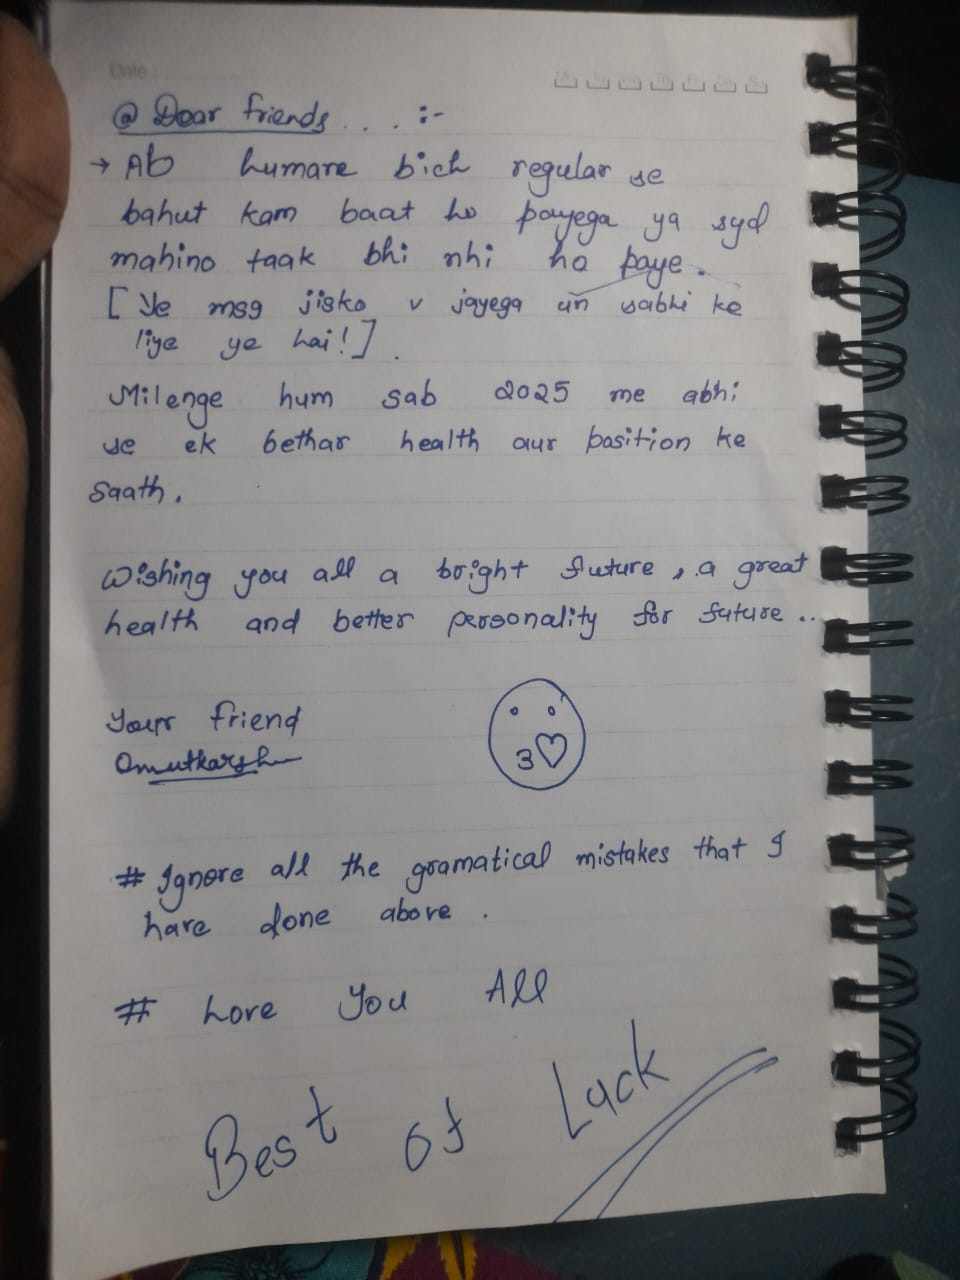 Date :
Mo Tu We Th Fr Sa Su
@ Dear friends . . . . :-
→ Ab humare bich regular se
bahut kam baat ho payega ya syd
mahino taak bhi nhi ho paye.
[ Ye msg jisko v jayega un sabhi ke
liye ye hai! ] .
Milenge hum sab 2025 me abhi
se ek bethar health aur position ke
saath.
Wishing you all a bright future, a great
health and better personality for future ..
Your friend
Omutkarsh
3
# Ignore all the gramatical mistakes that I
have done above .
# Love You All
Best of Luck